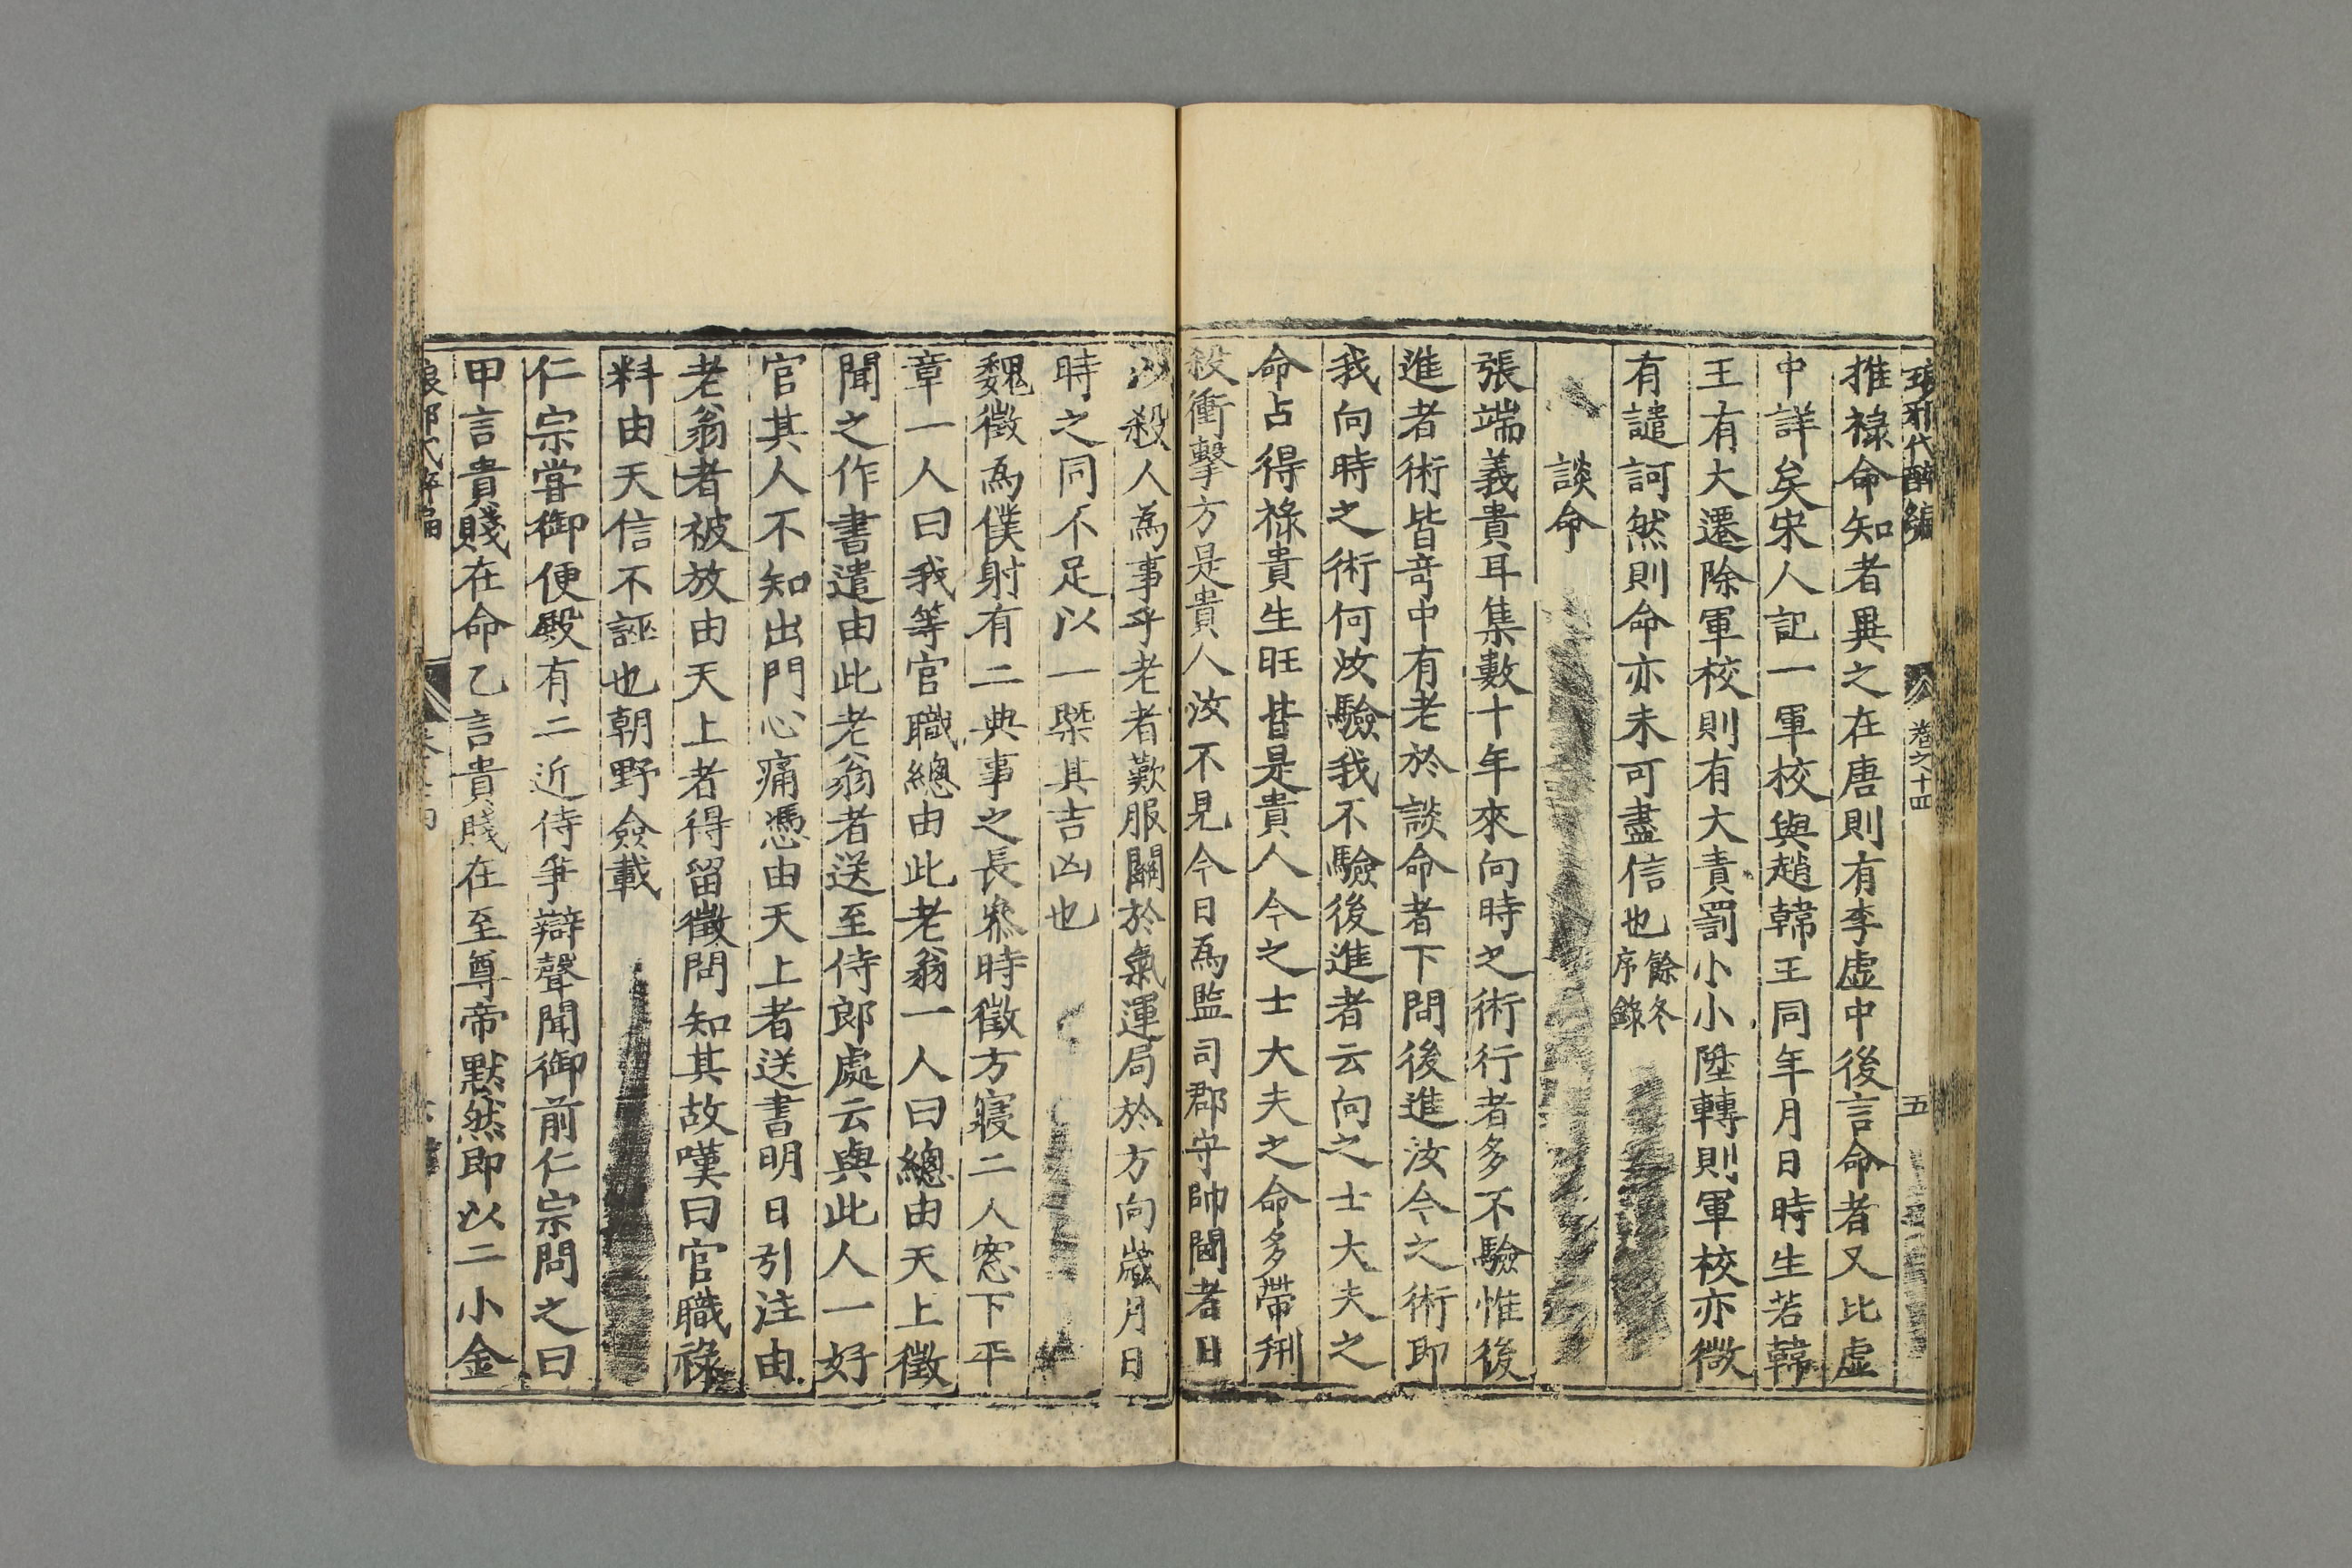 琅邪代醉編 卷之十四 五
推祿命知者異之在唐則有李虛中後言命者又比虛
中詳矣宋人記一軍校與趙韓王同年月日時生若韓
王有大遷除軍校則有大責罰小小陞轉則軍校亦微
有譴訶然則命亦未可盡信也餘冬序錄
談命
張端義貴耳集數十年來向時之術行者多不驗惟後
進者術皆奇中有老於談命者下問後進汝今之術即
我向時之術何汝驗我不驗後進者云向之士大夫之
命占得祿貴生旺皆是貴人今之士大夫之命多帶刑
殺衝擊方是貴人汝不見今日為監司郡守帥閫者日
以殺人為事乎老者歎服關於氣運局於方向歲月日
時之同不足以一槩其吉凶也
魏徵為僕射有二典事之長叅時徵方寢二人窓下平
章一人曰我等官職總由此老翁一人曰總由天上徵
聞之作書遣由此老翁者送至侍郎處云與此人一好
官其人不知出門心痛憑由天上者送書明日引注由
老翁者被放由天上者得留徵問知其故嘆曰官職祿
料由天信不誣也朝野僉載
仁宗嘗御便殿有二近侍爭辯聲聞御前仁宗問之曰
甲言貴賤在命乙言貴賤在至尊帝默然即以二小金